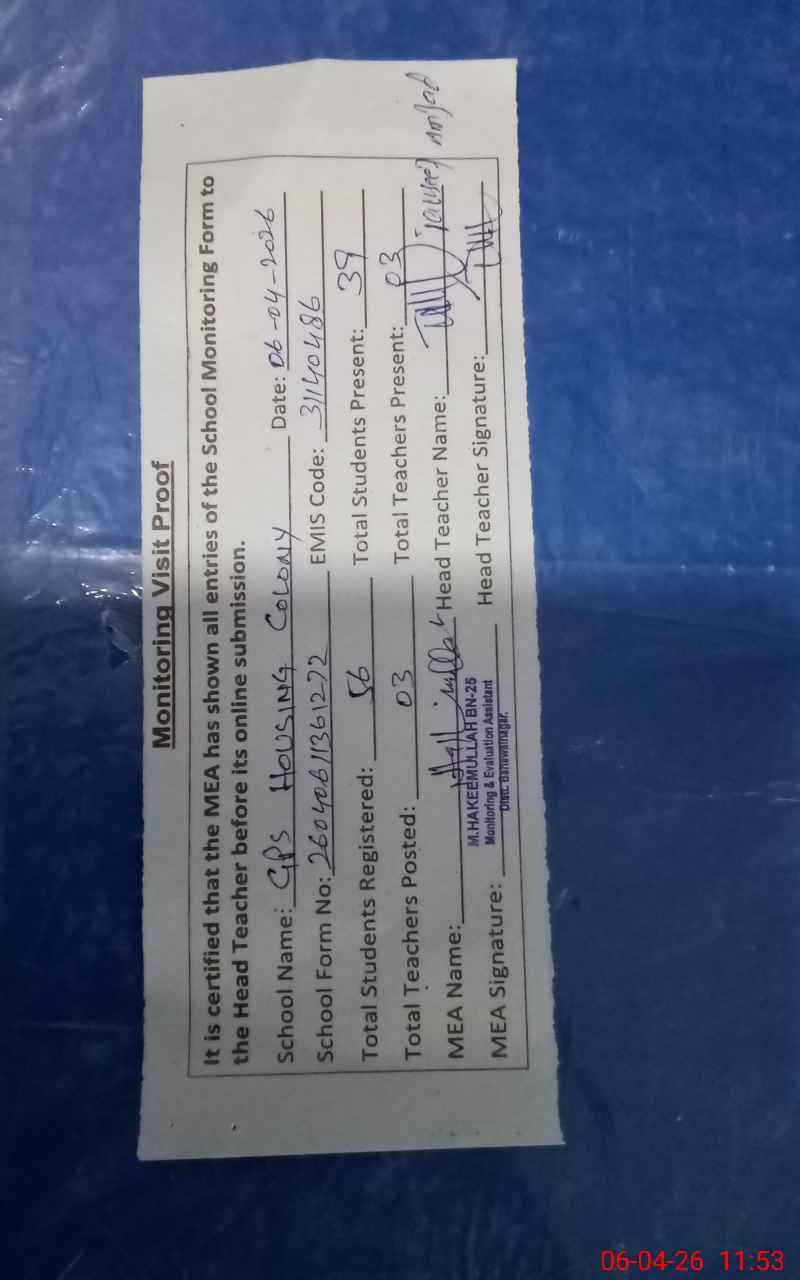 Monitoring Visit Proof
It is certified that the MEA has shown all entries of the School Monitoring Form to
the Head Teacher before its online submission.
School Name: GPS HOUSING COLONY Date: 06-04-2026
School Form No: 26040611361272 EMIS Code: 31140486
Total Students Registered: 56 Total Students Present: 39
Total Teachers Posted: 03 Total Teachers Present: 03
MEA Name: Head Teacher Name: Tauseef Amjad
M.HAKEEMULLAH BN-25
Monitoring & Evaluation Assistant
Distt. Bahawalnagar.
MEA Signature: Head Teacher Signature:
06-04-26 11:53